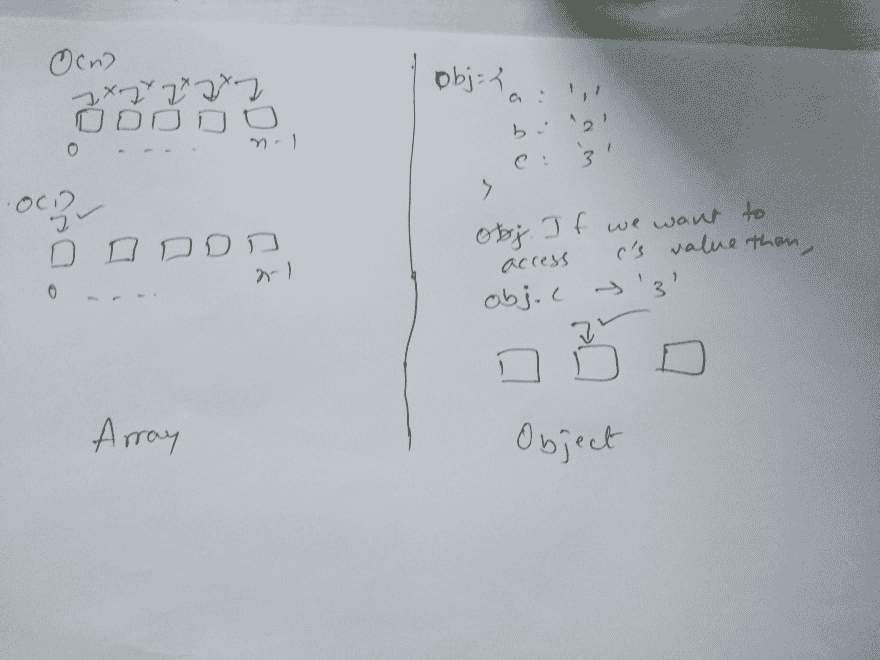 O(n)
0 - - - - n-1
O(1)
0 - - - - n-1
Array
obj = {
a : '1'
b : '2'
c : '3'
}
obj. If we want to
access c's value then,
obj.c → '3'
Object